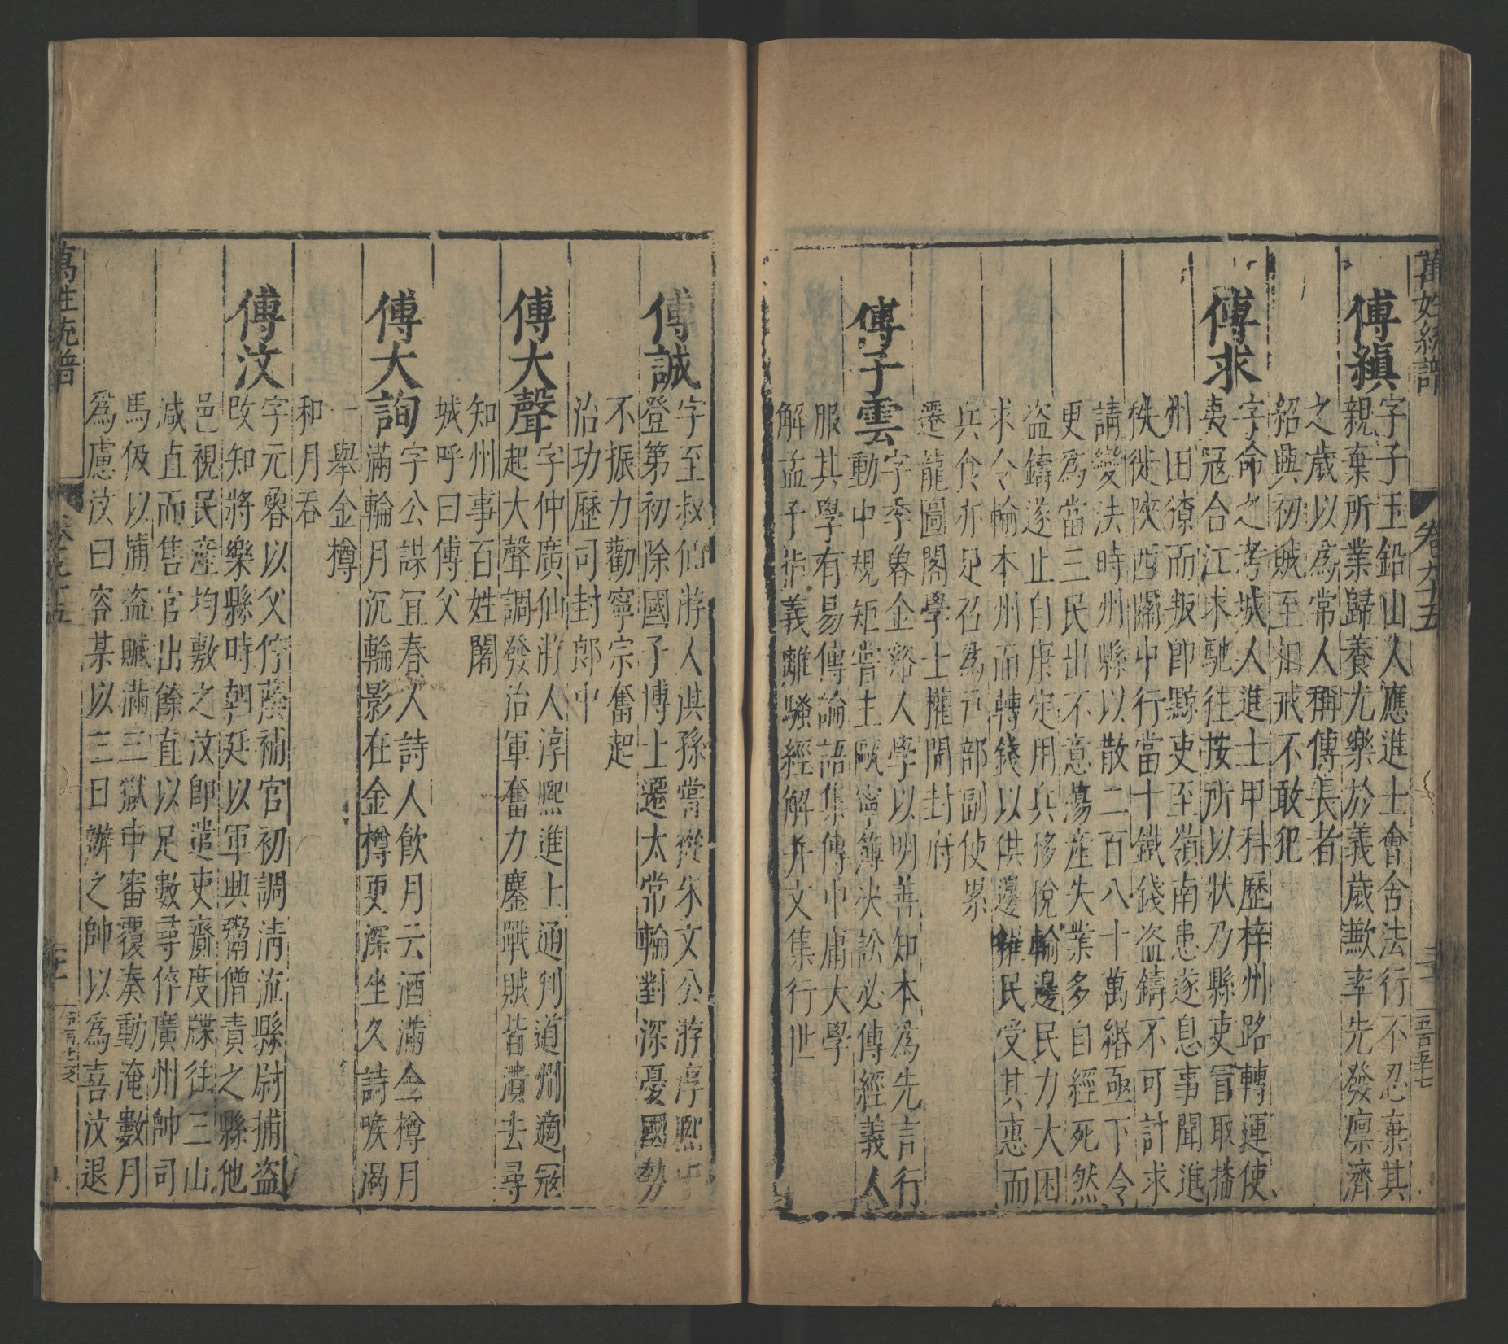 萬姓統譜 卷九十五
傅縝 字子玉鉛山人應進士會舍法行不忍棄其
親棄所業歸養尤樂於義歲歉率先發廩濟
之歲以為常人稱傅長者
紹興初賊至相戒不敢犯
傅求 字命之考城人進士甲科歷梓州路轉運使
夷寇合江求馳往按所以狀乃縣吏冒取播
州田獠而叛即黥吏至嶺南患遂息事聞進
秩徙陝西關中行當十鐵錢盗鑄不可計求
請變法時州縣以散二百八十萬緡亟下令
更為當三民出不意蕩産失業多自經死然
盗鑄遂止自康定用兵移稅輸邊民力大困
求令輸本州而轉錢以供邊糴民受其惠而
兵食亦足召為戸部副使累
遷龍圖閣學士權開封府
傅子雲 字季魯金谿人學以明善知本為先言行
動中規矩嘗主甌寧簿决訟必傅經義人
服其學有易傳論語集傳中庸大學
解孟子指義離騷經解并文集行世
傅誠 字至叔仙游人淇孫嘗從朱文公游淳熙中
登第初除國子博士遷太常輪對深憂國勢
不振力勸寧宗奮起
治功歷司封郎中
傅大聲 字仲廣仙游人淳熙進士通判道州適寇
起大聲調發治軍奮力鏖戰賊皆潰去尋
知州事百姓闍
城呼曰傅父
傅大詢 字公謀宜春人詩人飲月云酒滿金樽月
滿輪月沉輪影在金樽更深坐久詩喉渴
一舉金樽
和月吞
傅汶 字元䂮以父佇蔭補官初調清流縣尉捕盗
改知將樂縣時朝廷以軍興鬻僧責之縣他
邑視民産均敷之汶即遣吏齎度牒往三山
减直而售官出餘直以足數尋倅廣州帥司
馬伋以捕盗贓滿三獄中審覆奏動淹數月
為慮汶曰容某以三日辦之帥以為喜汶退
萬姓統譜